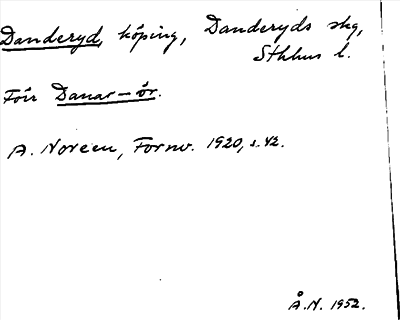 Danderyd, köping, Danderyds skg,
Sthlms l.
För Danar-ör.
A. Noreen, Fornv. 1920, s. 42.
Å.N. 1952.